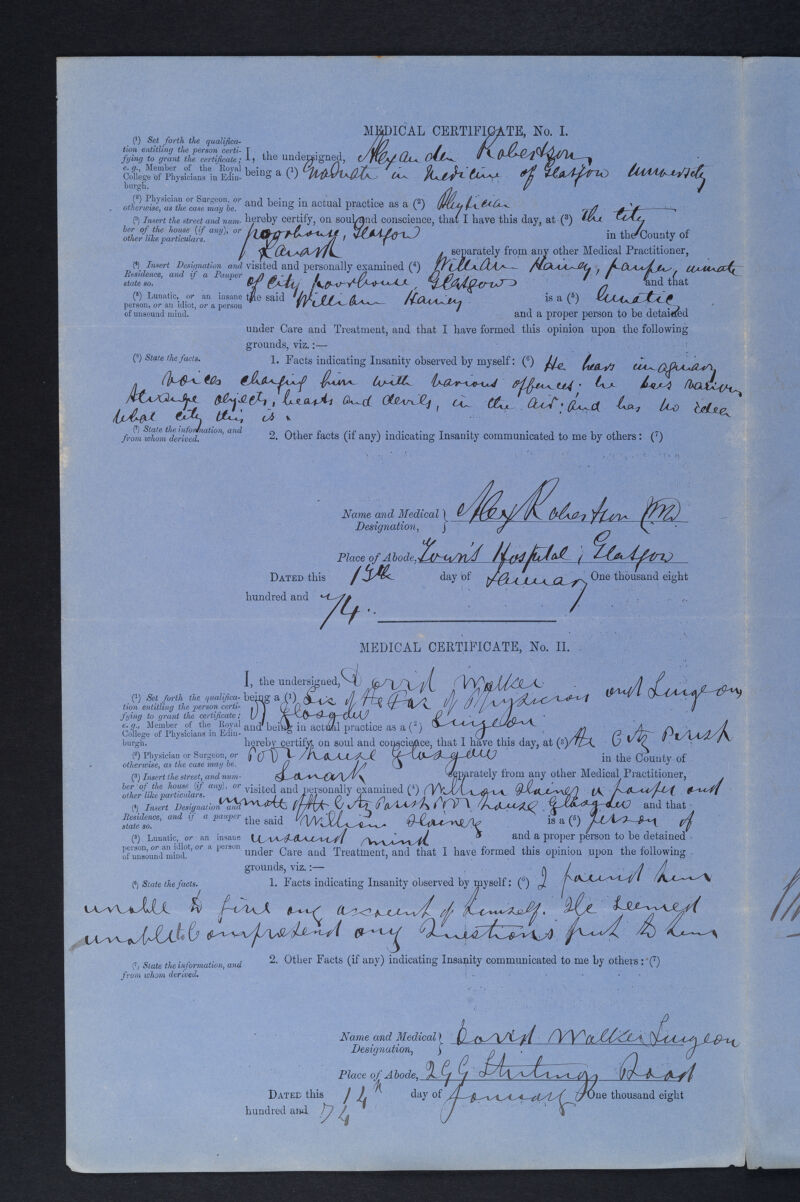 MEDICAL CERTIFICATE, No. I.
(¹) Set forth the qualifica-
tion entitling the person certi-
fying to grant the certificate;
e. g., Member of the Royal
College of Physicians in Edin-
burgh.
I, the undersigned, Alexander Robertson,
being a (¹) Graduate in Medicine of Glasgow University
(²) Physician or Surgeon, or
otherwise, as the case may be.
and being in actual practice as a (²) Physician
(³) Insert the street and num-
ber of the house (if any), or
other like particulars.
hereby certify, on soul and conscience, that I have this day, at (³) the City
poorhouse, Glasgow in the County of
Lanark separately from any other Medical Practitioner,
(⁴) Insert Designation and
Residence, and if a Pauper
state so.
visited and personally examined (⁴) William Hainey, pauper, inmate
of City poorhouse, Glasgow and that
(⁵) Lunatic, or an insane
person, or an idiot, or a person
of unsound mind.
the said William Hainey is a (⁵) lunatic
and a proper person to be detained
under Care and Treatment, and that I have formed this opinion upon the following
grounds, viz.:—
(⁶) State the facts.
1. Facts indicating Insanity observed by myself: (⁶) He hears imaginary
voices charging him with various offences; he sees various
strange objects, beasts and devils, in the air; and has no idea
what city this is.
(⁷) State the information, and
from whom derived.
2. Other facts (if any) indicating Insanity communicated to me by others: (⁷)
Name and Medical Designation, Alex Robertson M.D.
Place of Abode, Town's Hospital, Glasgow
DATED this 13th day of January One thousand eight
hundred and 74.
MEDICAL CERTIFICATE, No. II.
I, the undersigned, David Walker
(¹) Set forth the qualifica-
tion entitling the person certi-
fying to grant the certificate;
e. g., Member of the Royal
College of Physicians in Edin-
burgh.
being a (¹) Lic of the Fac of Physicians and Surgeons
of Glasgow
and being in actual practice as a (²) Surgeon
(²) Physician or Surgeon, or
otherwise, as the case may be.
hereby certify, on soul and conscience, that I have this day, at (³) the City Parish
Poor house Glasgow in the County of
(³) Insert the street, and num-
ber of the house (if any), or
other like particulars.
Lanark separately from any other Medical Practitioner,
visited and personally examined (⁴) William Hainey a pauper and
(⁴) Insert Designation and
Residence, and if a pauper
state so.
inmate of the City Parish Poor house Glasgow and that
the said William Hainey is a (⁵) person of
(⁵) Lunatic, or an insane
person, or an idiot, or a person
of unsound mind.
unsound mind and a proper person to be detained
under Care and Treatment, and that I have formed this opinion upon the following
grounds, viz.:—
(⁶) State the facts.
1. Facts indicating Insanity observed by myself: (⁶) I found him
unable to give any account of himself. He seemed
unable to comprehend any Questions put to him
(⁷) State the information, and
from whom derived.
2. Other Facts (if any) indicating Insanity communicated to me by others: (⁷)
Name and Medical Designation, David Walker Surgeon
Place of Abode, 299 Stirling Road
DATED this 14th day of January One thousand eight
hundred and 74